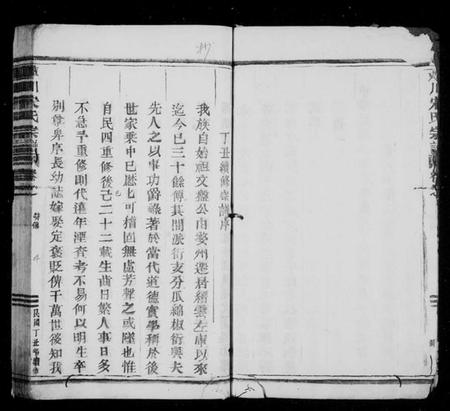 丁丑續修宗譜序
我族自始祖文盤公由婺州遷居縉雲左庫以來
迄今已三十餘傳其間派衍支分瓜綿椒衍與夫
先人之以事功爵祿著於當代道德實學稱於後
世家乘中已歷歷可稽固無虛芳聲之或墜也惟
自民四重修後已二十二載生齒日繁人事日多
不急予重修則代遠年湮查考不易何以明生卒
別尊卑序長幼誌嫁娶定褒貶俾千萬世後知我
川宋氏宗譜
民國丁丑年續修
川宋氏宗譜